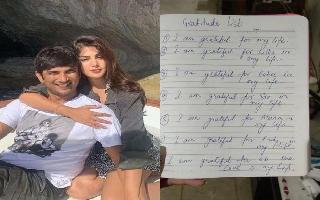 Gratitude list
① I am grateful for my life.
② I am grateful for Lillu in
my life.
③ I am grateful for bebu in
my life
④ I am grateful for Sir in
my life.
⑤ I am grateful for Ma'am in
my life
I am grateful for in
my life
I am grateful for all the
Love in my life